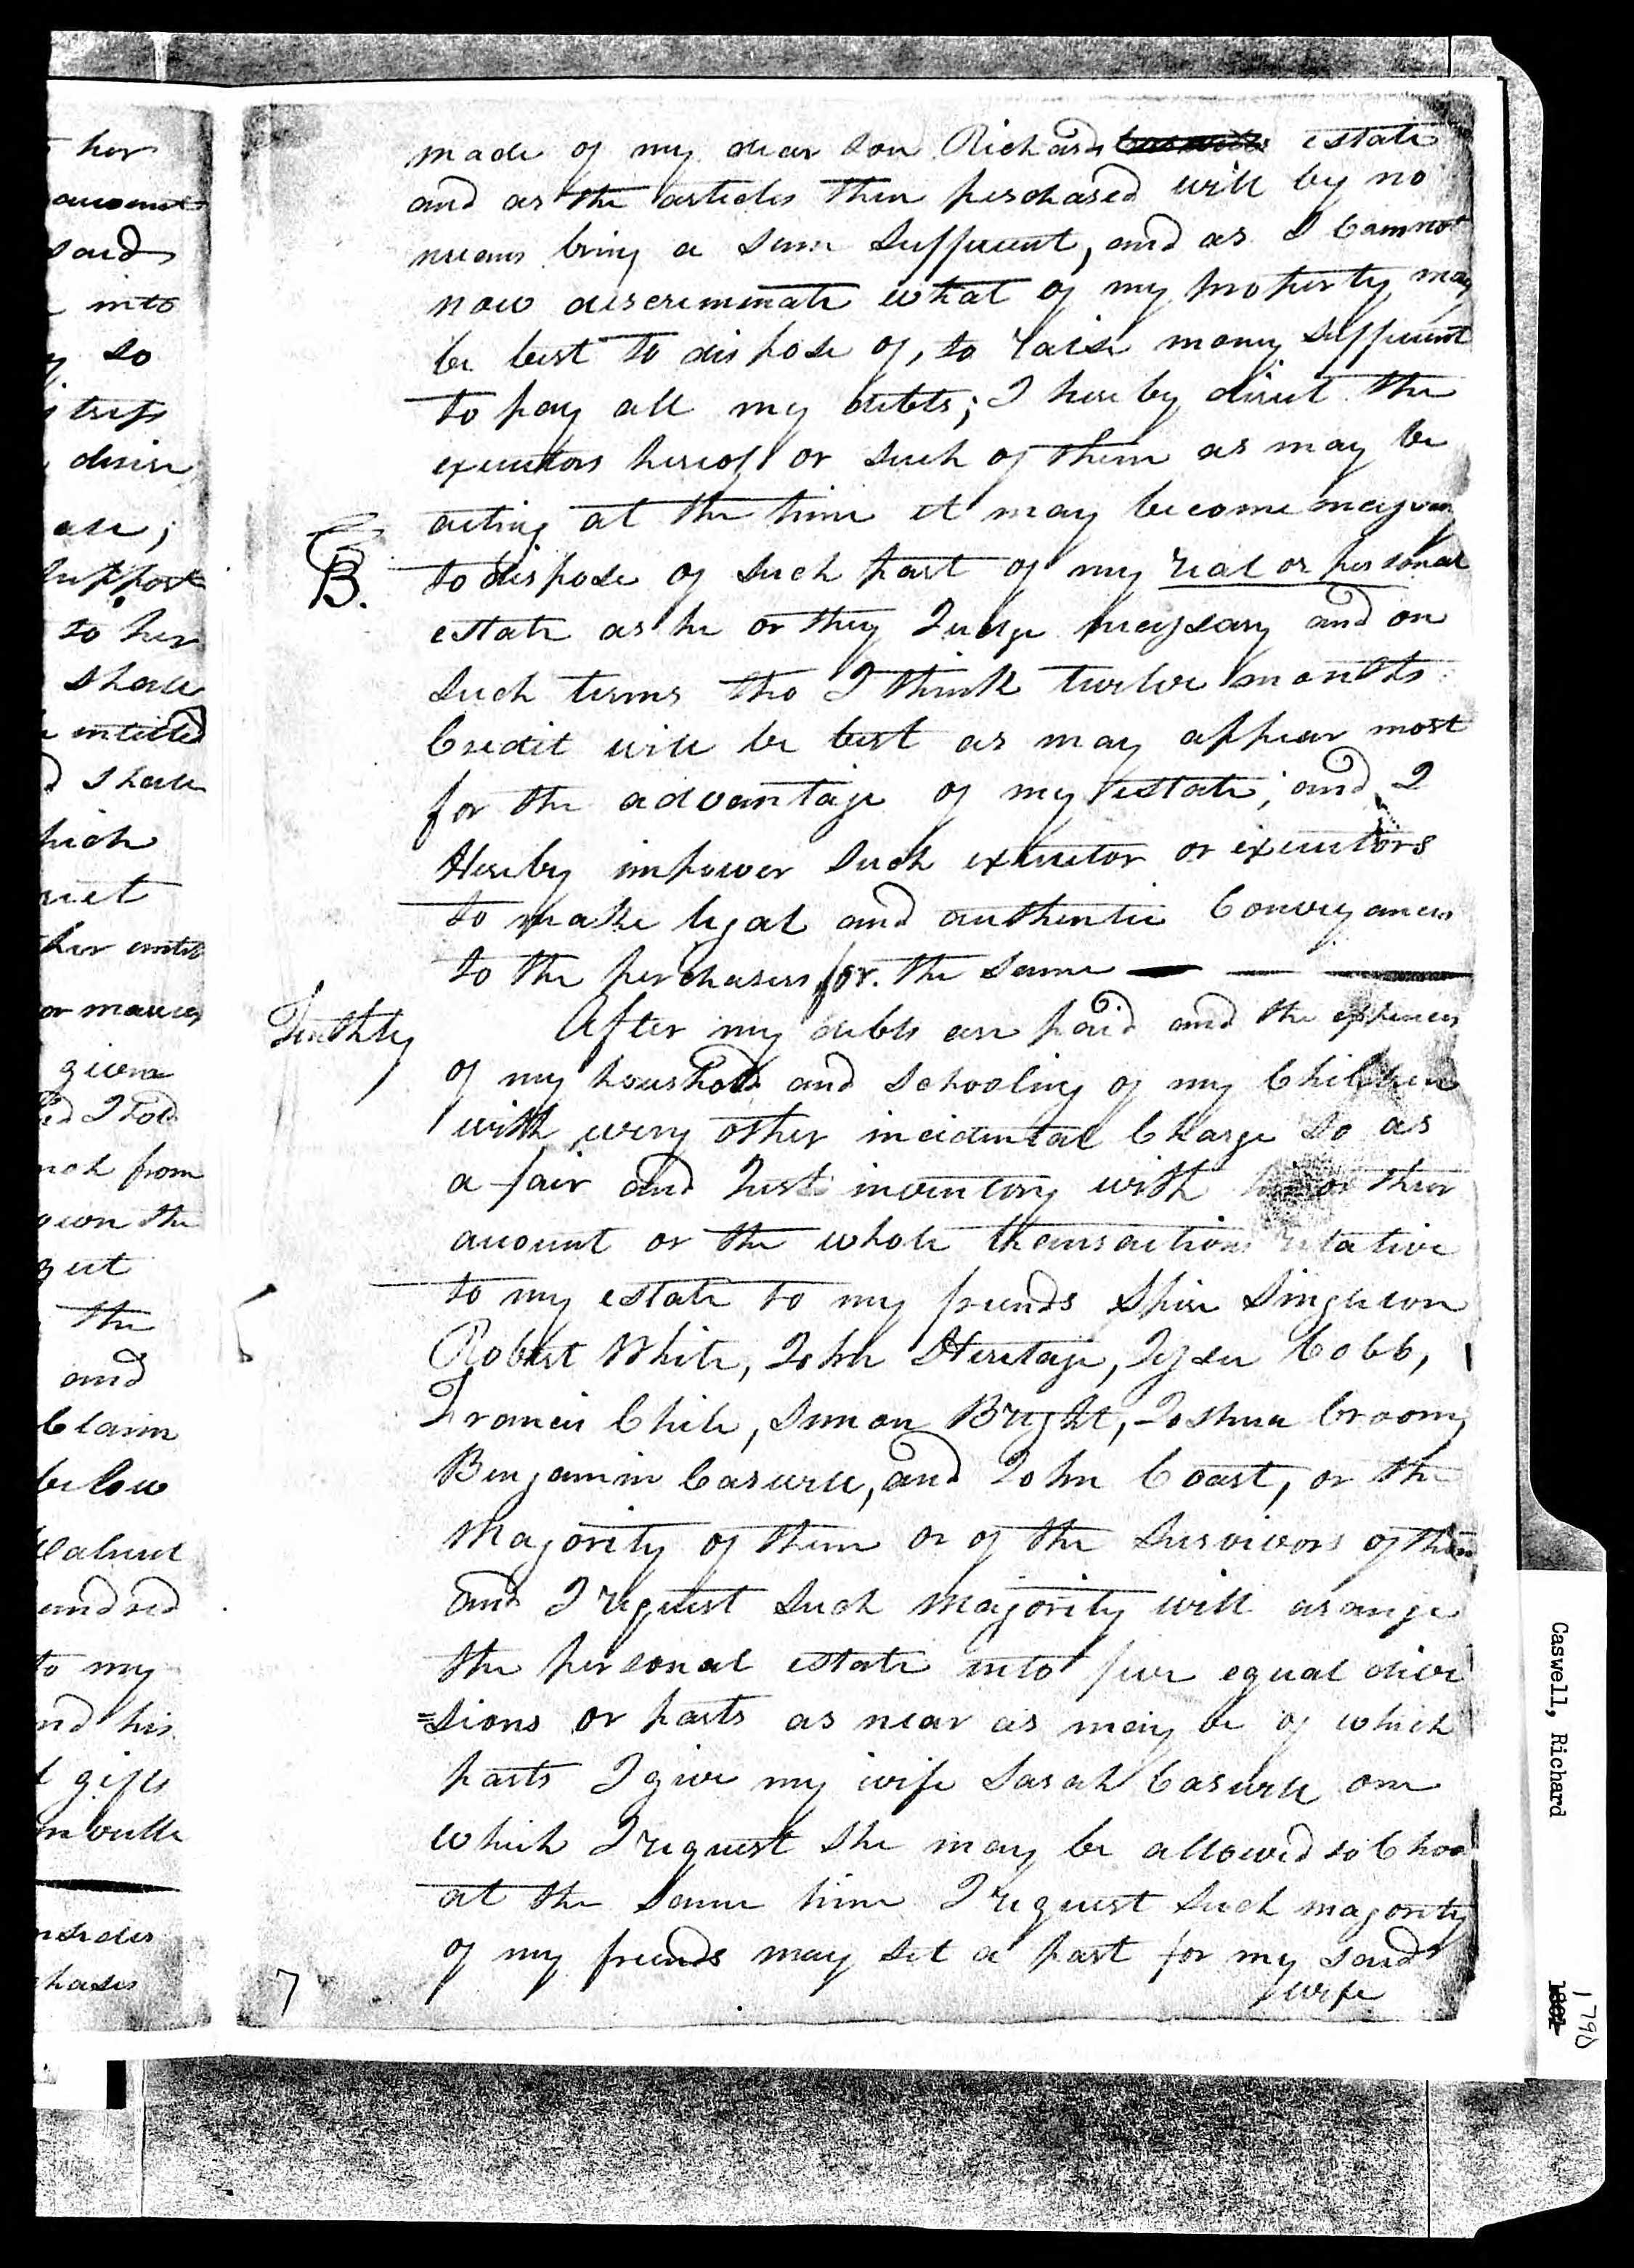 her
account
said
into
so
strip
desire
ate;
support
to her
shall
intitled
d shall
hich
riet
her entit
or marries
given
ed I sold
nch from
the
get
the
and
Claim
below
valued
undred
to my
nd his
gifts
hases
made of my dear son Richard estate
and as the articles then perchased will by no
means bring a sum sufficient, and as I Cannot
now discriminate what of my property may
be best to dispose of, to raise money sufficient
to pay all my debts; I hereby direct the
executors hereof or such of them as may be
acting at the time it may become necessary
B. to dispose of such part of my real or personal
estate as he or they Judge necessary and on
such terms tho I think twelve months
Credit will be best as may appear most
for the advantage of my estate; and I
Hereby impower such executor or executors
to make legal and authentic Conveyances
to the perchasers for the same
Tenthly After my debts are paid and the expences
of my houshold and schooling of my Children
with every other incidental Charge so as
a fair and Just inventory with or their
account or the whole transactions relative
to my estate to my friends Spier Singleton
Robert White, John Heritage, Jesse Cobb,
Francis Child, Simon Bright, Joshua Croom,
Benjamin Caswell, and John Coart, or the
Majority of them or of the Survivors of them
and I request such Majority will arange
the personal estate into five equal divi
=sions or parts as near as may be of which
parts I give my wife Sarah Caswell one
which I request she may be allowed to Choo
at the same time I request such majority
of my friends may set a part for my said
wife
7
Caswell, Richard
1801
1790